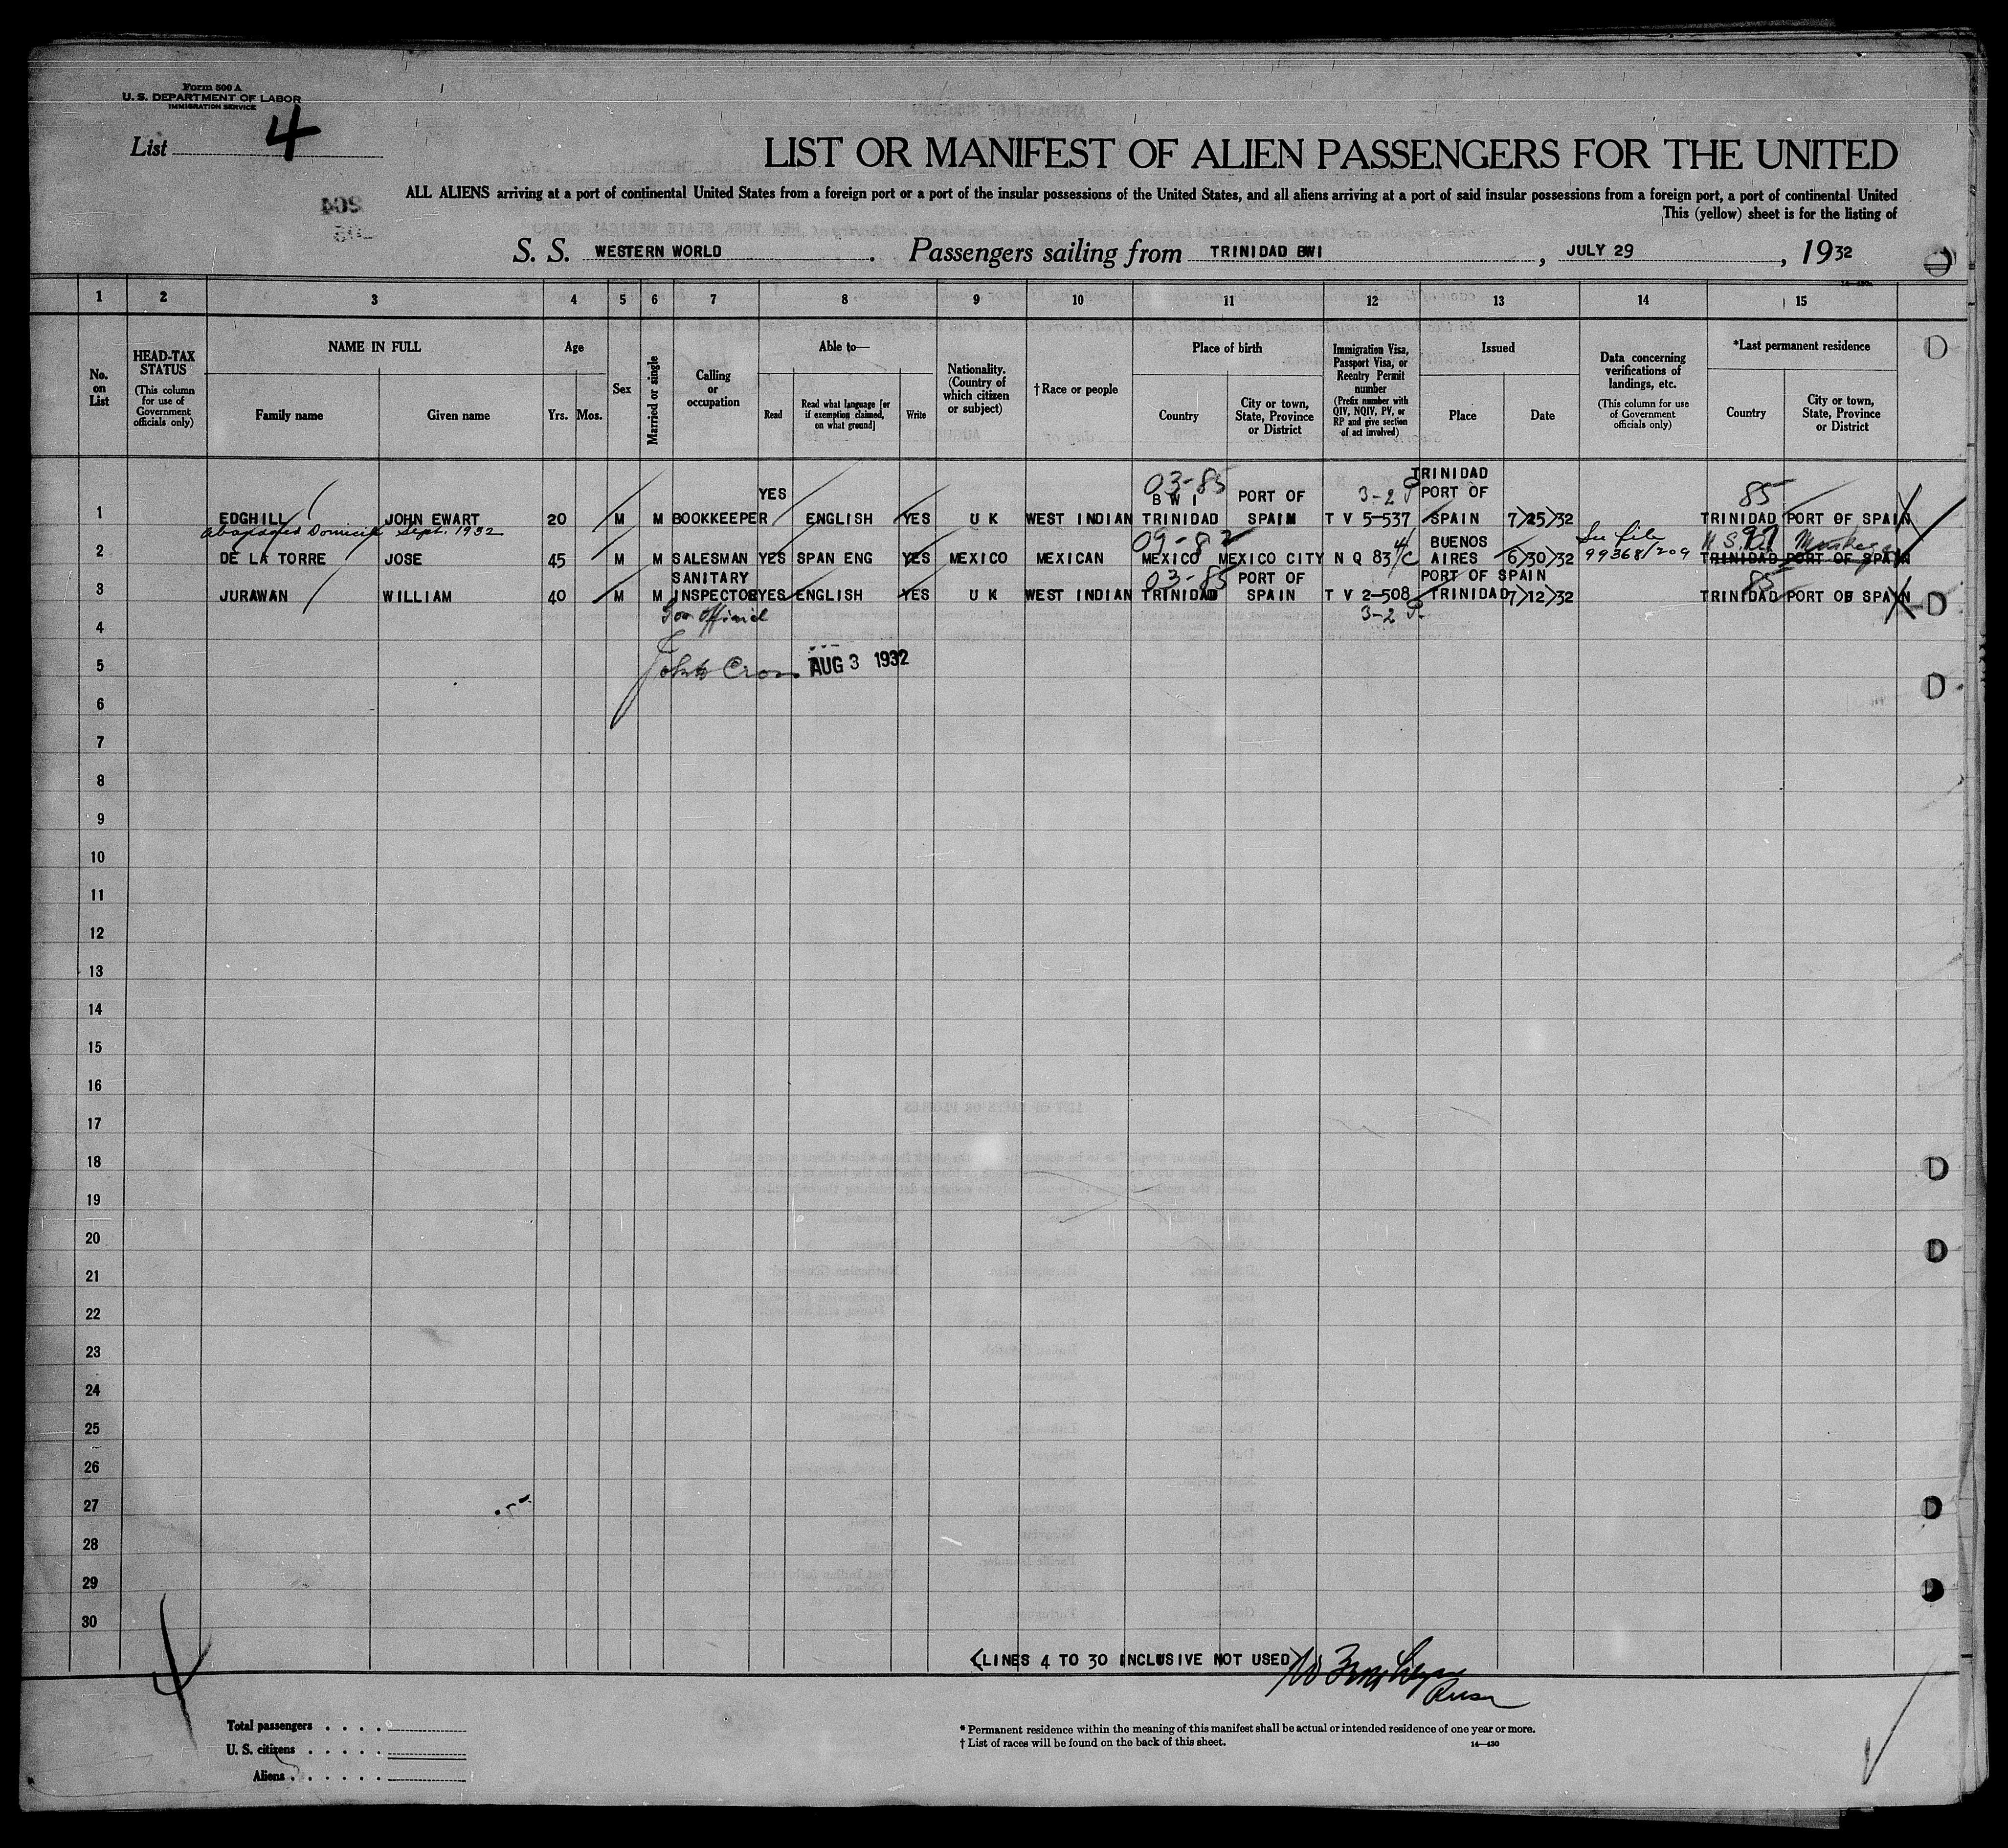 Form 500 A
U. S. DEPARTMENT OF LABOR
IMMIGRATION SERVICE
List 4
LIST OR MANIFEST OF ALIEN PASSENGERS FOR THE UNITED
ALL ALIENS arriving at a port of continental United States from a foreign port or a port of the insular possessions of the United States, and all aliens arriving at a port of said insular possessions from a foreign port, a port of continental United
This (yellow) sheet is for the listing of
S. S. WESTERN WORLD . Passengers sailing from TRINIDAD BWI , JULY 29 , 1932
1 2 3 4 5 6 7 8 9 10 11 12 13 14 15
No. on List
HEAD-TAX STATUS
(This column for use of Government officials only)
NAME IN FULL
Family name
Given name
Age
Yrs.
Mos.
Sex
Married or single
Calling or occupation
Able to—
Read
Read what language [or if exemption claimed, on what ground]
Write
Nationality. (Country of which citizen or subject)
† Race or people
Place of birth
Country
City or town, State, Province or District
Immigration Visa, Passport Visa, or Reentry Permit number
(Prefix number with QIV, NQIV, PV, or RP and give section of act involved)
Issued
Place
Date
Data concerning verifications of landings, etc.
(This column for use of Government officials only)
*Last permanent residence
Country
City or town, State, Province or District
03-85 TRINIDAD
YES B W I PORT OF 3-2 PORT OF 85
1 EDGHILL JOHN EWART 20 M M BOOKKEEPER ENGLISH YES U K WEST INDIAN TRINIDAD SPAIN T V 5-537 SPAIN 7/25/32 TRINIDAD PORT OF SPAIN
abandoned Domicile Sept. 1932
09-82 BUENOS See file U.S.
2 DE LA TORRE JOSE 45 M M SALESMAN YES SPAN ENG YES MEXICO MEXICAN MEXICO MEXICO CITY N Q 83 AIRES 6/30/32 99368/209 TRINIDAD PORT OF SPAIN
SANITARY 03-85 PORT OF PORT OF SPAIN 85
3 JURAWAN WILLIAM 40 M M INSPECTOR YES ENGLISH YES U K WEST INDIAN TRINIDAD SPAIN T V 2-508 TRINIDAD 7/12/32 TRINIDAD PORT OF SPAIN
Official 3-2
4
John Cross AUG 3 1932
5
6
7
8
9
10
11
12
13
14
15
16
17
18
19
20
21
22
23
24
25
26
27
28
29
30
(LINES 4 TO 30 INCLUSIVE NOT USED)
Total passengers . . . .
U. S. citizens . . . . .
Aliens . . . . . .
* Permanent residence within the meaning of this manifest shall be actual or intended residence of one year or more.
† List of races will be found on the back of this sheet.
14—430